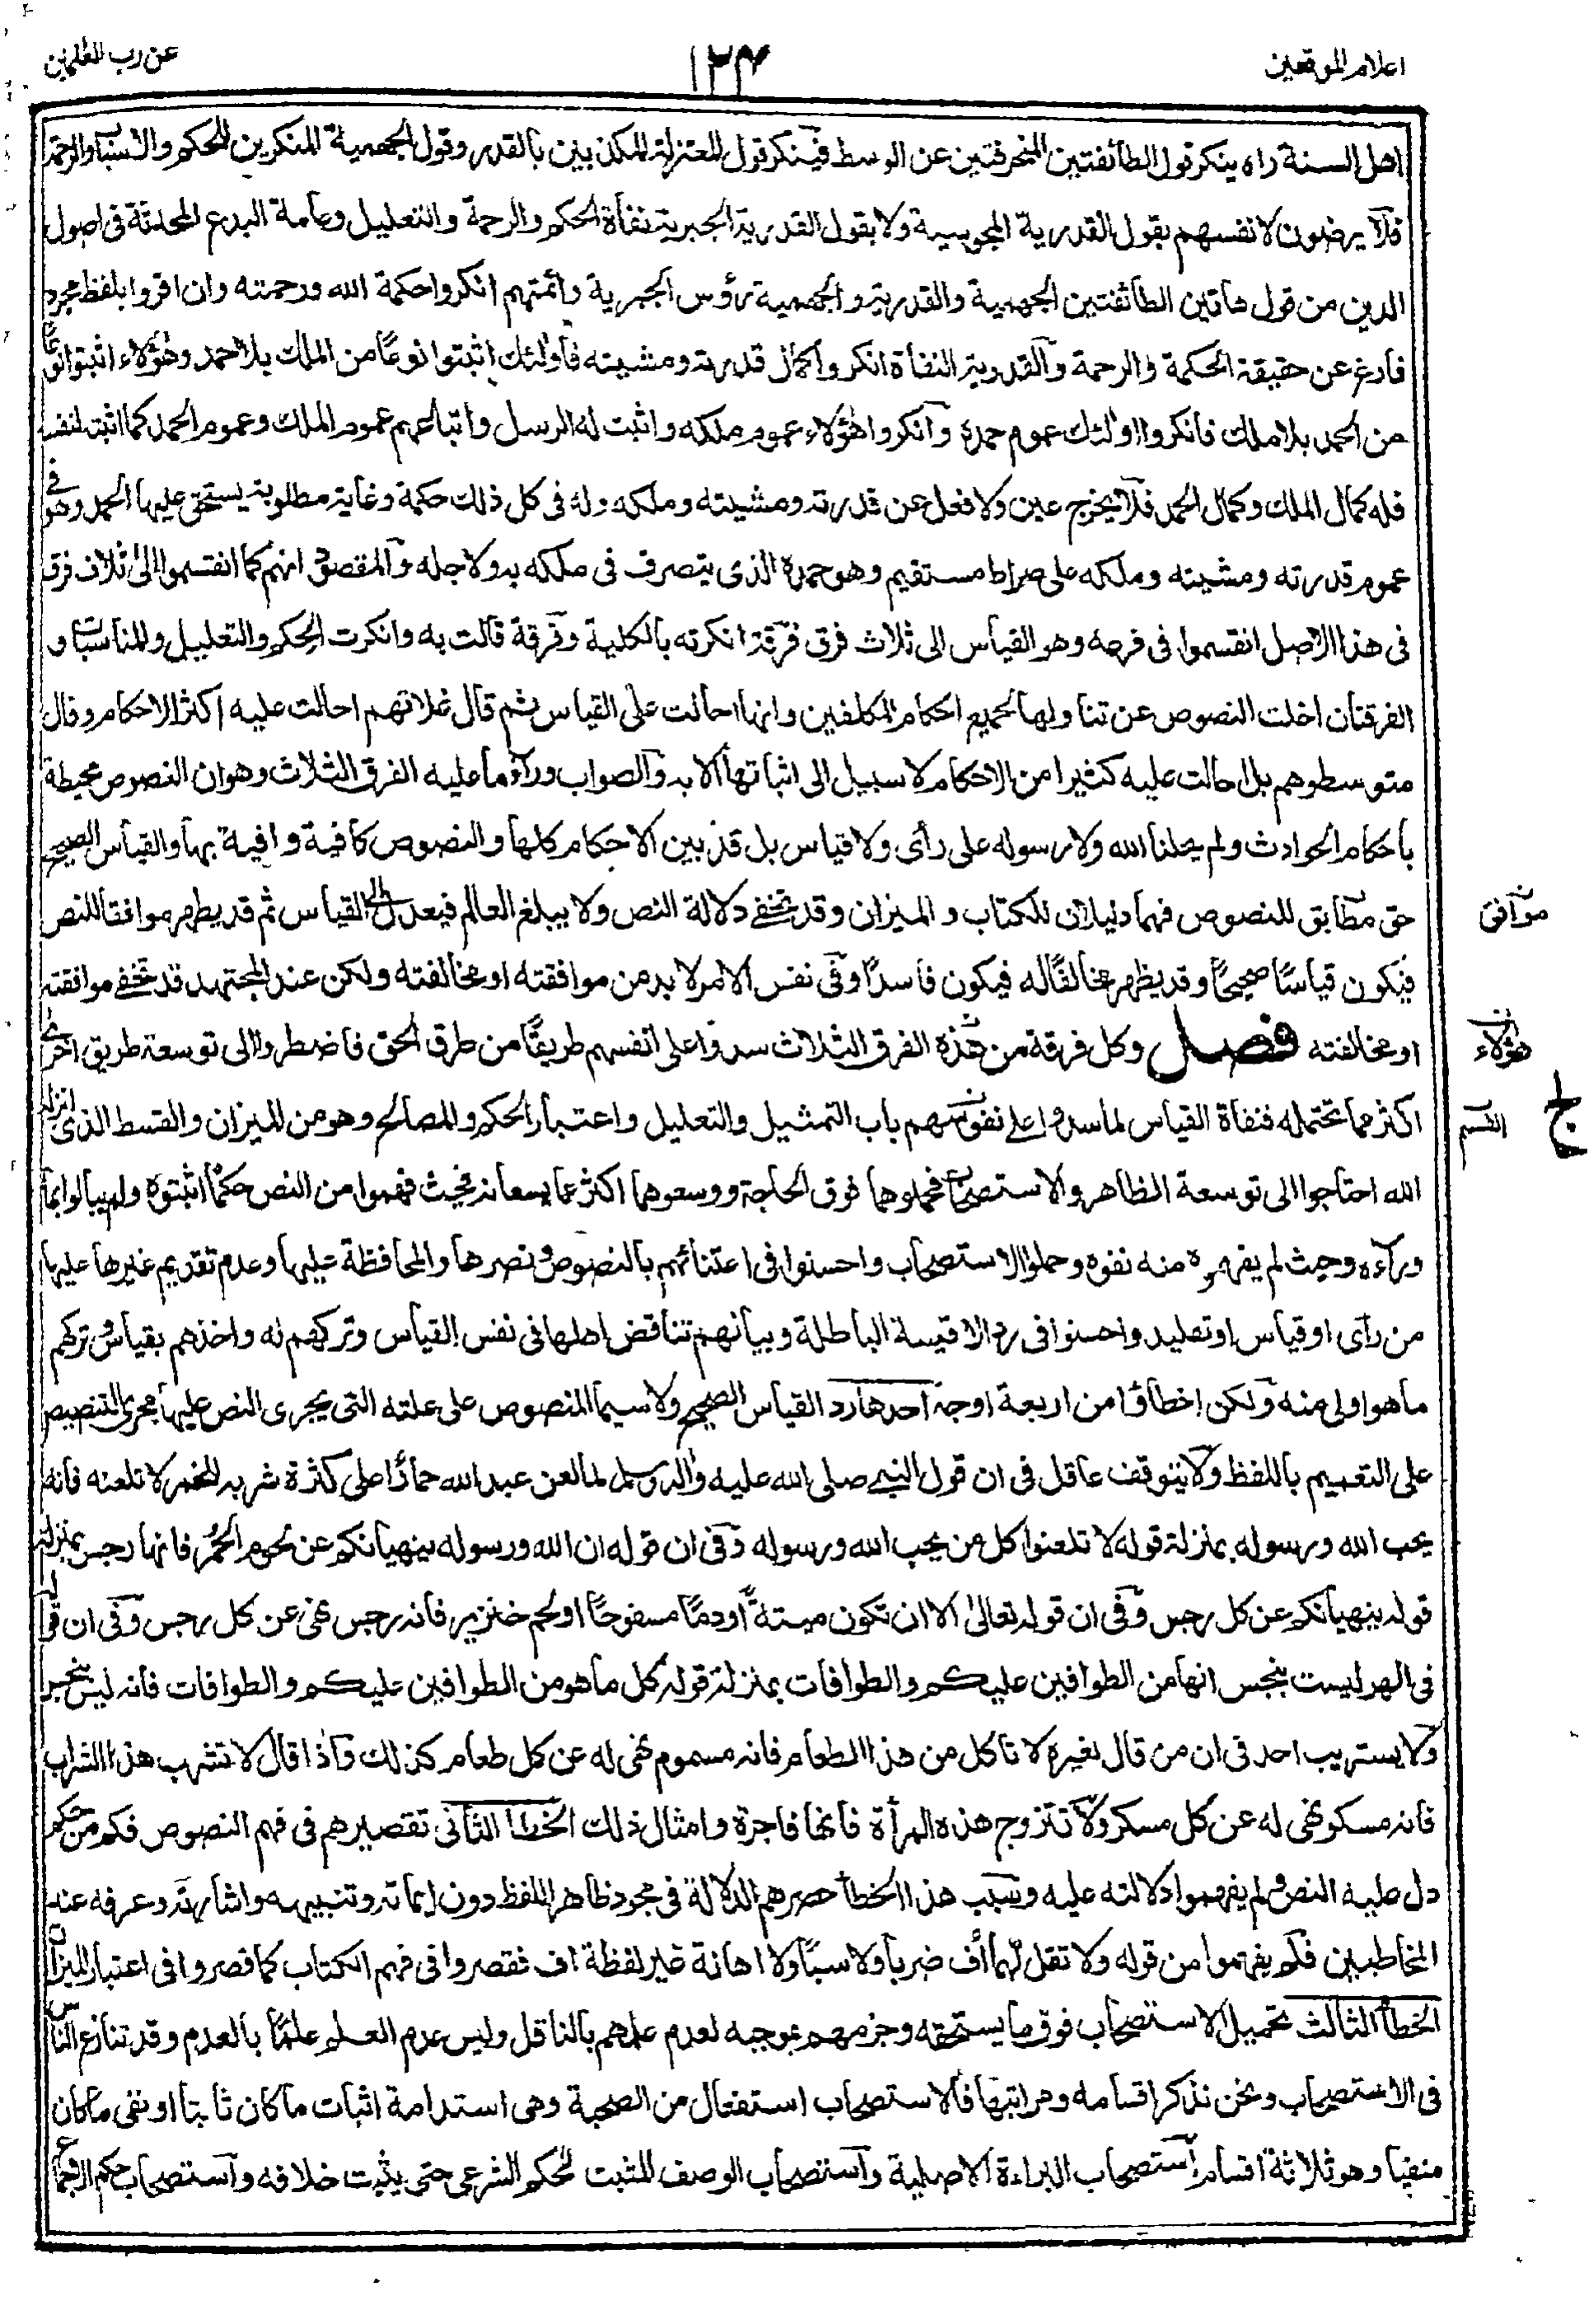 اعلام الموقعين
١٢٣
عن رب العلمين
اهل السنة راه ينكر قول الطائفتين المنحرفتين عن الوسط فينكر قول المعتزلة المكذبين بالقدر وقول الجهمية المنكرين للحكم والاسباب والرحمة
فلا يرضون لانفسهم بقول القدرية المجوسية ولا بقول القدرية الجبرية نفاة الحكم والرحمة والتعليل وعامة البدع المحدثة فى اصول
الدين من قول هاتين الطائفتين الجهمية والقدرية والجهمية رؤس الجبرية وائمتهم انكروا حكمة الله ورحمته وان اقروا بلفظ مجرد
فارغ عن حقيقة الحكمة والرحمة والقدرية النفاة انكروا كمال قدرته ومشيته فاولئك اثبتوا نوعا من الملك بلا حمد وهؤلاء اثبتوا نوعا
من الحمد بلا ملك فانكروا اولئك عموم حمده وانكروا هؤلاء عموم ملكه واثبت له الرسل واتباعهم عموم الملك وعموم الحمد كما اثبته لنفسه
فله كمال الملك وكمال الحمد فلا يخرج عين ولا فعل عن قدرته ومشيته وملكه وله فى كل ذلك حكمة وغاية مطلوبة يستحق عليها الحمد وهو فى
عموم قدرته ومشيته وملكه على صراط مستقيم وهو حمده الذى يتصرف فى ملكه به ولاجله والمقصود انهم كما انقسموا الى ثلاث فرق
فى هذا الاصل انقسموا فى فرعه وهو القياس الى ثلاث فرق فرقة انكرته بالكلية وفرقة قالت به وانكرت الحكم والتعليل والمناسبات و
الفرقتان اخلت النصوص عن تناولها لجميع احكام المكلفين وانها احالت على القياس ثم قال غلاتهم احالت عليه اكثر الاحكام وقال
متوسطوهم بل احالت عليه كثيرا من الاحكام لا سبيل الى اثباتها الا به والصواب وراء ما عليه الفرق الثلاث وهو ان النصوص محيطة
باحكام الحوادث ولم يحلنا الله ولا رسوله على رأى ولا قياس بل قد بين الاحكام كلها والنصوص كافية وافية بها والقياس الصحيح
حق مطابق للنصوص فهما دليلان للكتاب والميزان وقد تخفى دلالة النص ولا يبلغ العالم فيعدل الى القياس ثم قد يظهر موافقا للنص
موافق
فيكون قياسا صحيحا وقد يظهر مخالفا له فيكون فاسدا وفى نفس الامر لا بد من موافقته او مخالفته ولكن عند المجتهد قد تخفى موافقته
او مخالفته فصل وكل فرقة من هذه الفرق الثلاث سدوا على انفسهم طريقا من طرق الحق فاضطروا الى توسعة طريق اخرى
هؤلاء
اكثر مما تحتمله فنفاة القياس لما سدوا على نفوسهم باب التمثيل والتعليل واعتبار الحكم والمصالح وهو من الميزان والقسط الذى انزله
القسم
ج
الله احتاجوا الى توسعة الظاهر والاستصحاب فحملوهما فوق الحاجة ووسعوهما اكثر مما يسعانه فحيث فهموا من النص حكما اثبتوه ولم يبالوا بما
وراءه وحيث لم يفهموه منه نفوه وحملوا الاستصحاب واحسنوا فى اعتنائهم بالنصوص ونصرها والمحافظة عليها وعدم تقديم غيرها عليها
من رأى او قياس او تقليد واحسنوا فى رد الاقيسة الباطلة وبيانهم تناقض اهلها فى نفس القياس وتركهم له واخذهم بقياس وتركهم
ما هو اولى منه ولكن اخطأوا من اربعة اوجه احدها رد القياس الصحيح ولا سيما المنصوص على علته التى يجرى النص عليها مجرى التنصيص
على التعميم باللفظ ولا يتوقف عاقل فى ان قول النبى صلى الله عليه واله وسلم لما لعن عبد الله حمارا على كثرة شربه للخمر لا تلعنه فانه
يحب الله ورسوله بمنزلة قوله لا تلعنوا كل من يحب الله ورسوله وفى ان قوله ان الله ورسوله ينهيانكم عن لحوم الحمر فانها رجس بمنزلة
قوله ينهيانكم عن كل رجس وفى ان قوله تعالى الا ان تكون ميتة او دما مسفوحا او لحم خنزير فانه رجس نهى عن كل رجس وفى ان قوله
فى الهر ليست بنجس انها من الطوافين عليكم والطوافات بمنزلة قوله كل ما هو من الطوافين عليكم والطوافات فانه ليس بنجس
ولا يستريب احد فى ان من قال لغيره لا تاكل من هذا الطعام فانه مسموم نهى له عن كل طعام كذلك واذا قال لا تشرب هذا الشراب
فانه مسكر نهى له عن كل مسكر ولا تتزوج هذه المرأة فانها فاجرة وامثال ذلك الخطأ الثانى تقصيرهم فى فهم النصوص فكم من حكم
دل عليه النص ولم يفهموا دلالته عليه وسبب هذا الخطأ حصرهم الدلالة فى مجرد ظاهر اللفظ دون ايمائه وتنبيهه واشارته وعرفه عند
المخاطبين فلم يفهموا من قوله ولا تقل لهما أف ضربا ولا سبا ولا اهانة غير لفظة اف فقصروا فى فهم الكتاب كما قصروا فى اعتبار الميزان
الخطأ الثالث تحميل الاستصحاب فوق ما يستحقه وجزمهم بموجبه لعدم علمهم بالناقل وليس عدم العلم علما بالعدم وقد تنازع الناس
فى الاستصحاب ونحن نذكر اقسامه ومراتبها فالاستصحاب استفعال من الصحبة وهى استدامة اثبات ما كان ثابتا او نفى ما كان
منفيا وهو ثلاثة اقسام استصحاب البراءة الاصلية واستصحاب الوصف المثبت للحكم الشرعى حتى يثبت خلافه واستصحاب حكم الاجماع